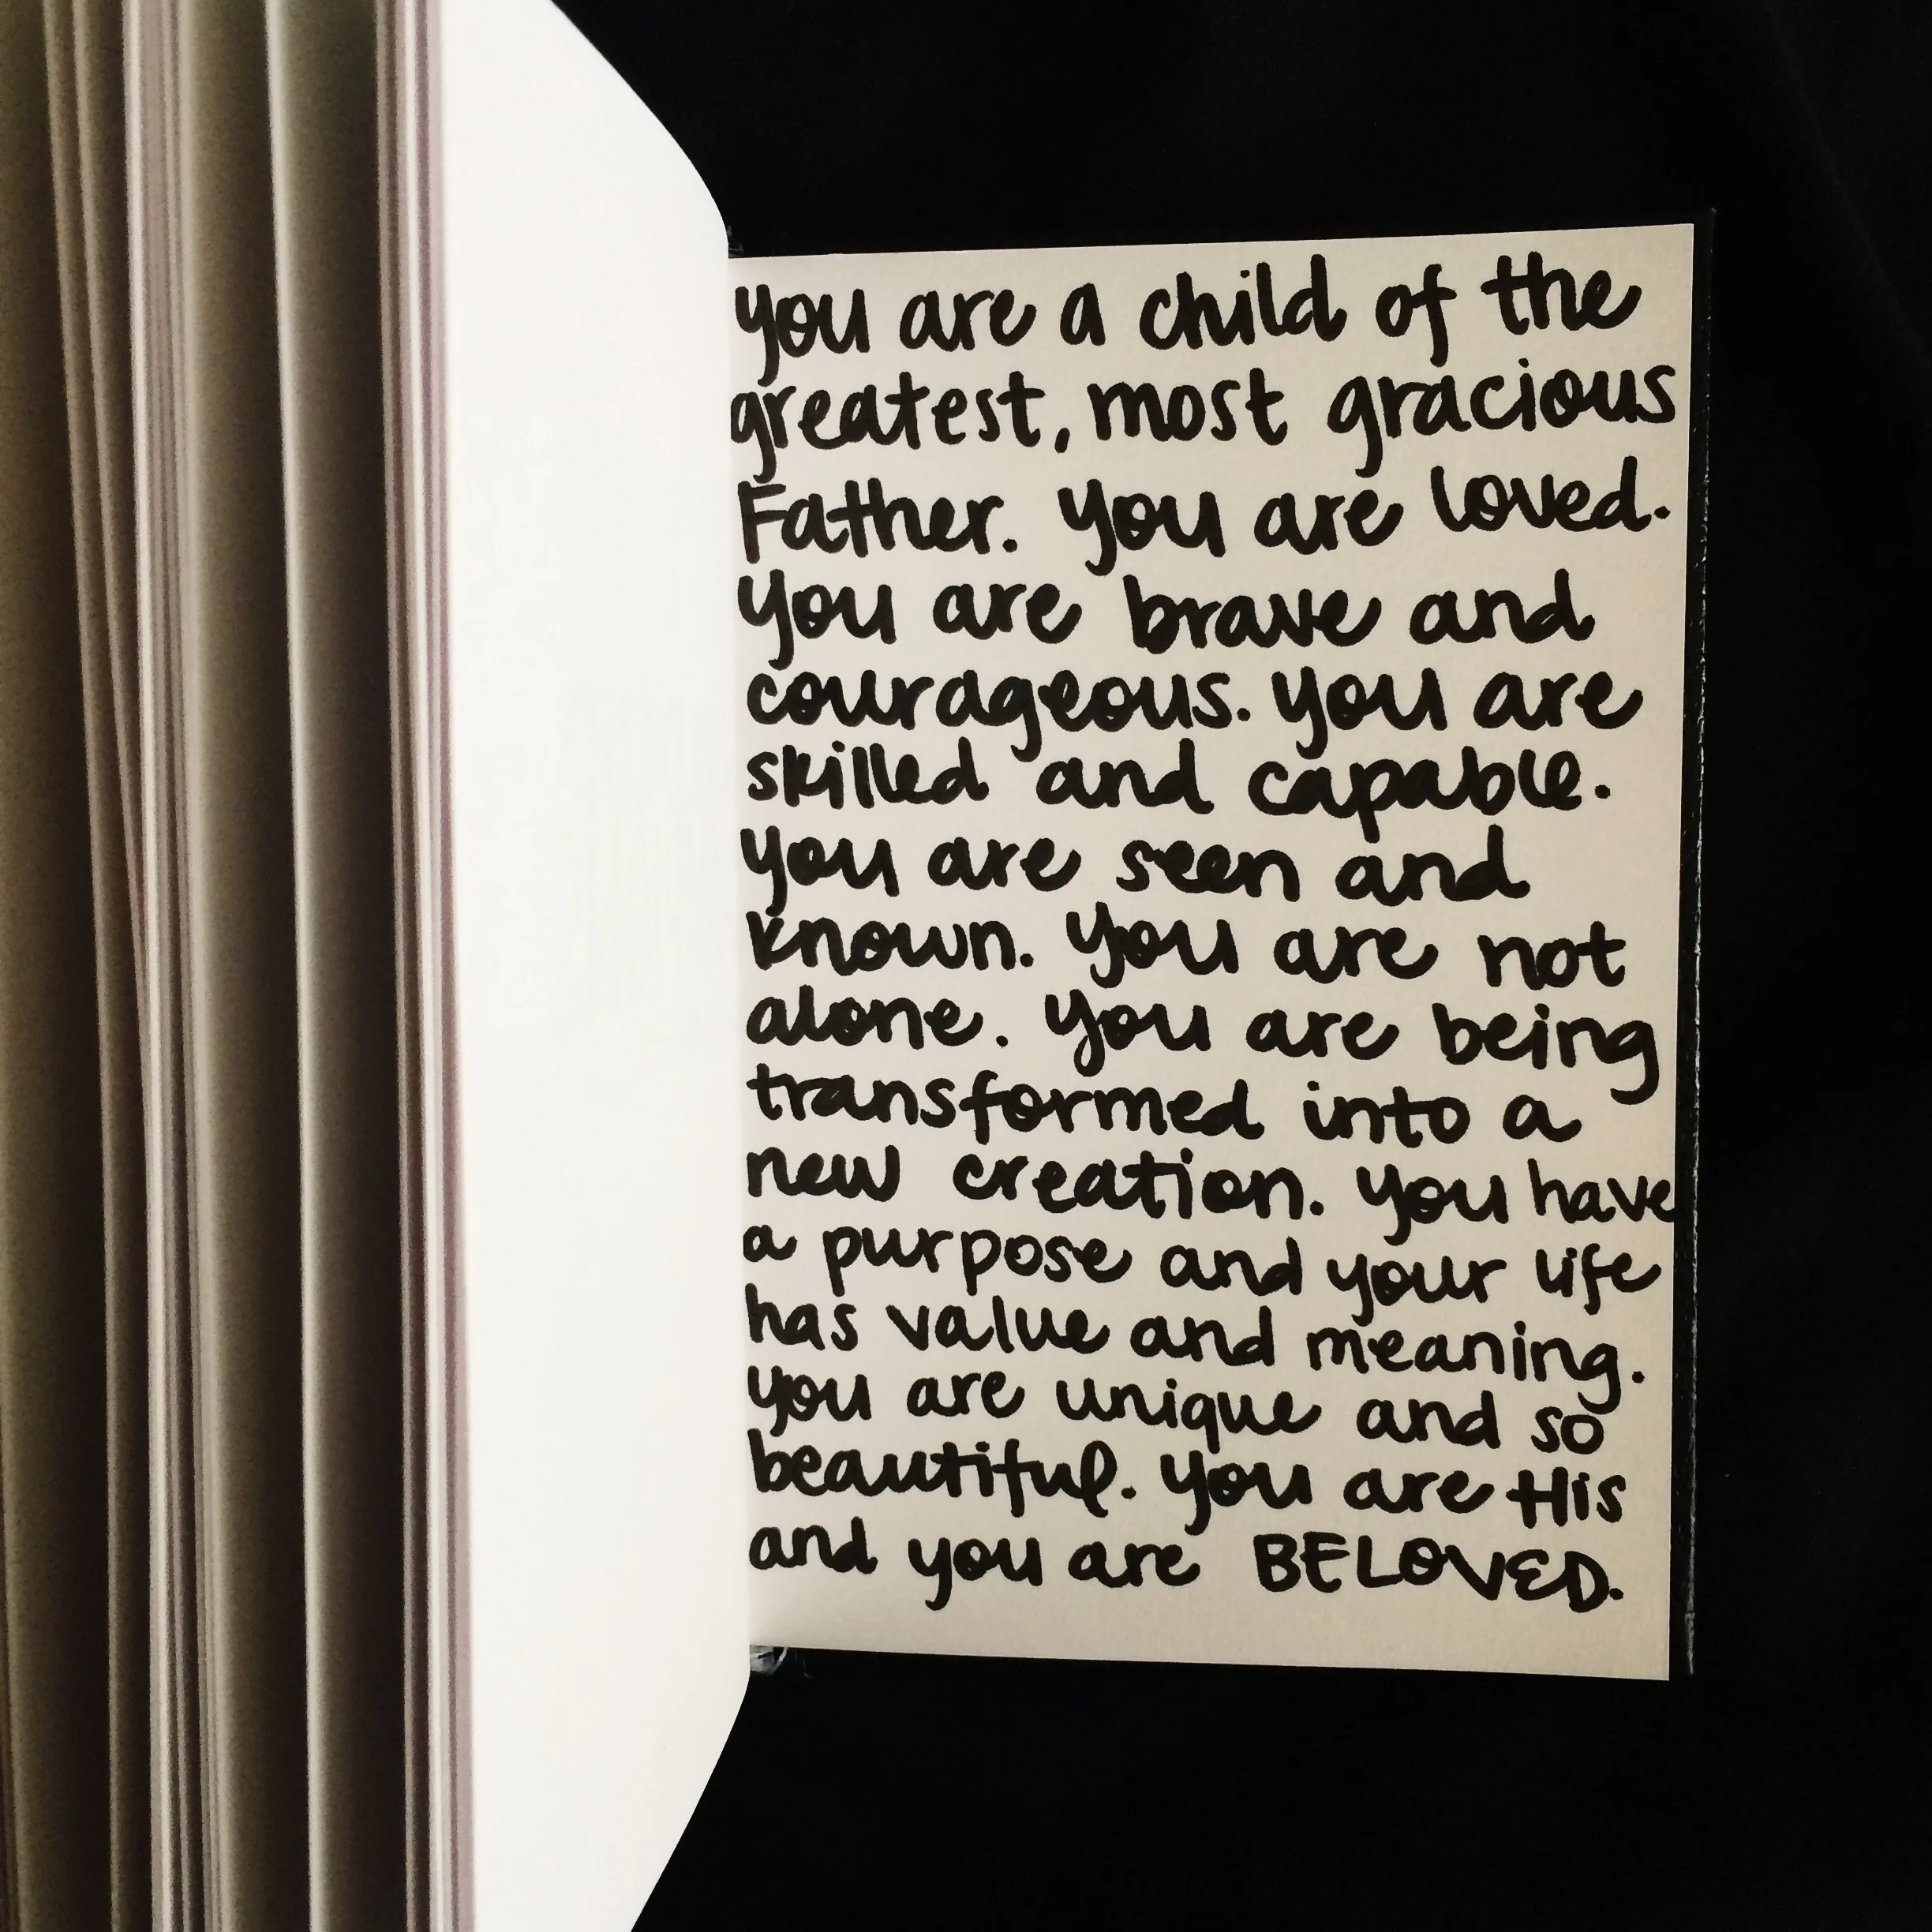 you are a child of the
greatest, most gracious
Father. You are loved.
You are brave and
courageous. You are
skilled and capable.
You are seen and
known. You are not
alone. You are being
transformed into a
new creation. You have
a purpose and your life
has value and meaning.
You are unique and so
beautiful. You are His
and you are BELOVED.